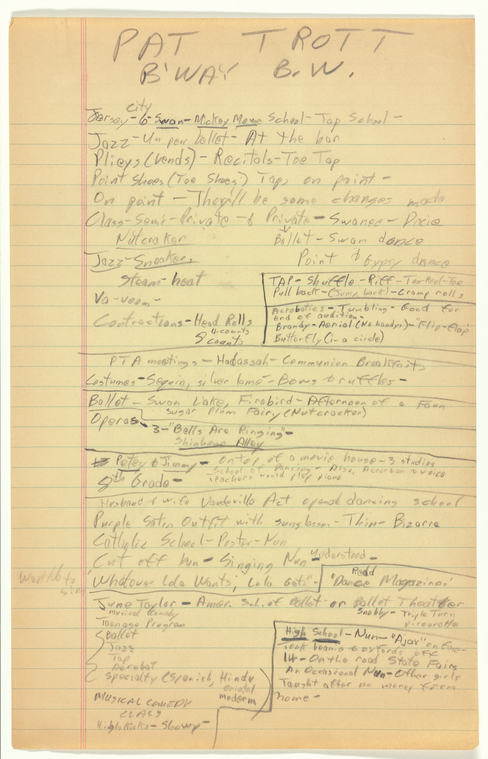 PAT TROTT
B'WAY B.W.
city
Jersey - 6 - Swan - Mickey Mouse School - Tap School -
Jazz - Un peu ballet - At the bar
Plieys (bends) - Recitals - Toe Tap
Point Shoes (Toe Shoes) Taps on point -
On point - They'll be some changes made
Class - Semi-Private - & Private - Swanee - Dixie
Nutcracker
Ballet - Swan dance
Jazz - Sneakers
Point & Gypsy dance
Steam-heat
Va-voom -
Contractions - Head Rolls
4 counts
8 counts
TAP - Shuffle - Riff - Toe Heel-Toe
Pull back - (Jump back) - Cramp rolls
Acrobatics - Tumbling - Good for
end of audition -
Brandy - Aerial (No hands) - Flip-Flop
Butterfly (in a circle)
PTA meetings - Hadassah - Communion Breakfasts
Costumes - Sequin, silver lame - Bows & ruffles -
Ballet - Swan Lake, Firebird - Afternoon of a Faun
Sugar Plum Fairy (Nutcracker)
Operas - 3 - "Bells Are Ringing" -
Shinbone Alley
Petey & Jimmy - On top of a movie house - 3 studios
School of Dancing - Also, Accordion & voice
teachers would play piano
8th Grade -
Husband & wife Vaudeville Act opened dancing school
Purple Satin Outfit with sunglasses - Thin - Bizarre
Catholic School - Poster - Nun
Cut off nun - Singing Nun - understood -
Whatever Lola Wants, Lola Gets -
Read
"Dance Magazines"
June Taylor - Amer. Sch. of Ballet or Ballet Theater
Snobby - Triple Turn
pirouette
Musical Comedy
Teenage Program
Ballet
Jazz
Tap
Acrobat
Specialty (Spanish, Hindu
Oriental
modern)
MUSICAL COMEDY
CLASS
High Kicks - Showy -
High School - Nun - "Ajax" on face -
beanie & oxfords off
14 - On the road State Fairs
An Occasional Nun - Other girls
Taught after no money from
home -